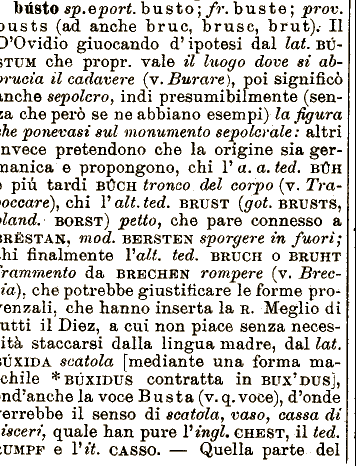 bústo sp. e port. busto; fr. buste; prov.
busts (ad anche bruc, brusc, brut). Il
D'Ovidio giuocando d'ipotesi dal lat. BÚ-
STUM che propr. vale il luogo dove si ab-
brucia il cadavere (v. Burare), poi significò
anche sepolcro, indi presumibilmente (sen-
za che però se ne abbiano esempi) la figura
che ponevasi sul monumento sepolcrale: altri
invece pretendono che la origine sia ger-
manica e propongono, chi l'a. a. ted. BÛH
e piú tardi BÛCH tronco del corpo (v. Tra-
boccare), chi l'alt. ted. BRUST (got. BRUSTS,
oland. BORST) petto, che pare connesso a
BRËSTAN, mod. BERSTEN sporgere in fuori;
chi finalmente l'alt. ted. BRUCH o BRUHT
frammento da BRECHEN rompere (v. Brec-
cia), che potrebbe giustificare le forme pro-
venzali, che hanno inserta la R. Meglio di
tutti il Diez, a cui non piace senza neces-
sità staccarsi dalla lingua madre, dal lat.
BÚXIDA scatola [mediante una forma ma-
schile *BÚXIDUS contratta in BUX'DUS],
ond'anche la voce Busta (v. q. voce), d'onde
verrebbe il senso di scatola, vaso, cassa di
visceri, quale han pure l'ingl. CHEST, il ted.
RUMPF e l'it. CASSO. — Quella parte del